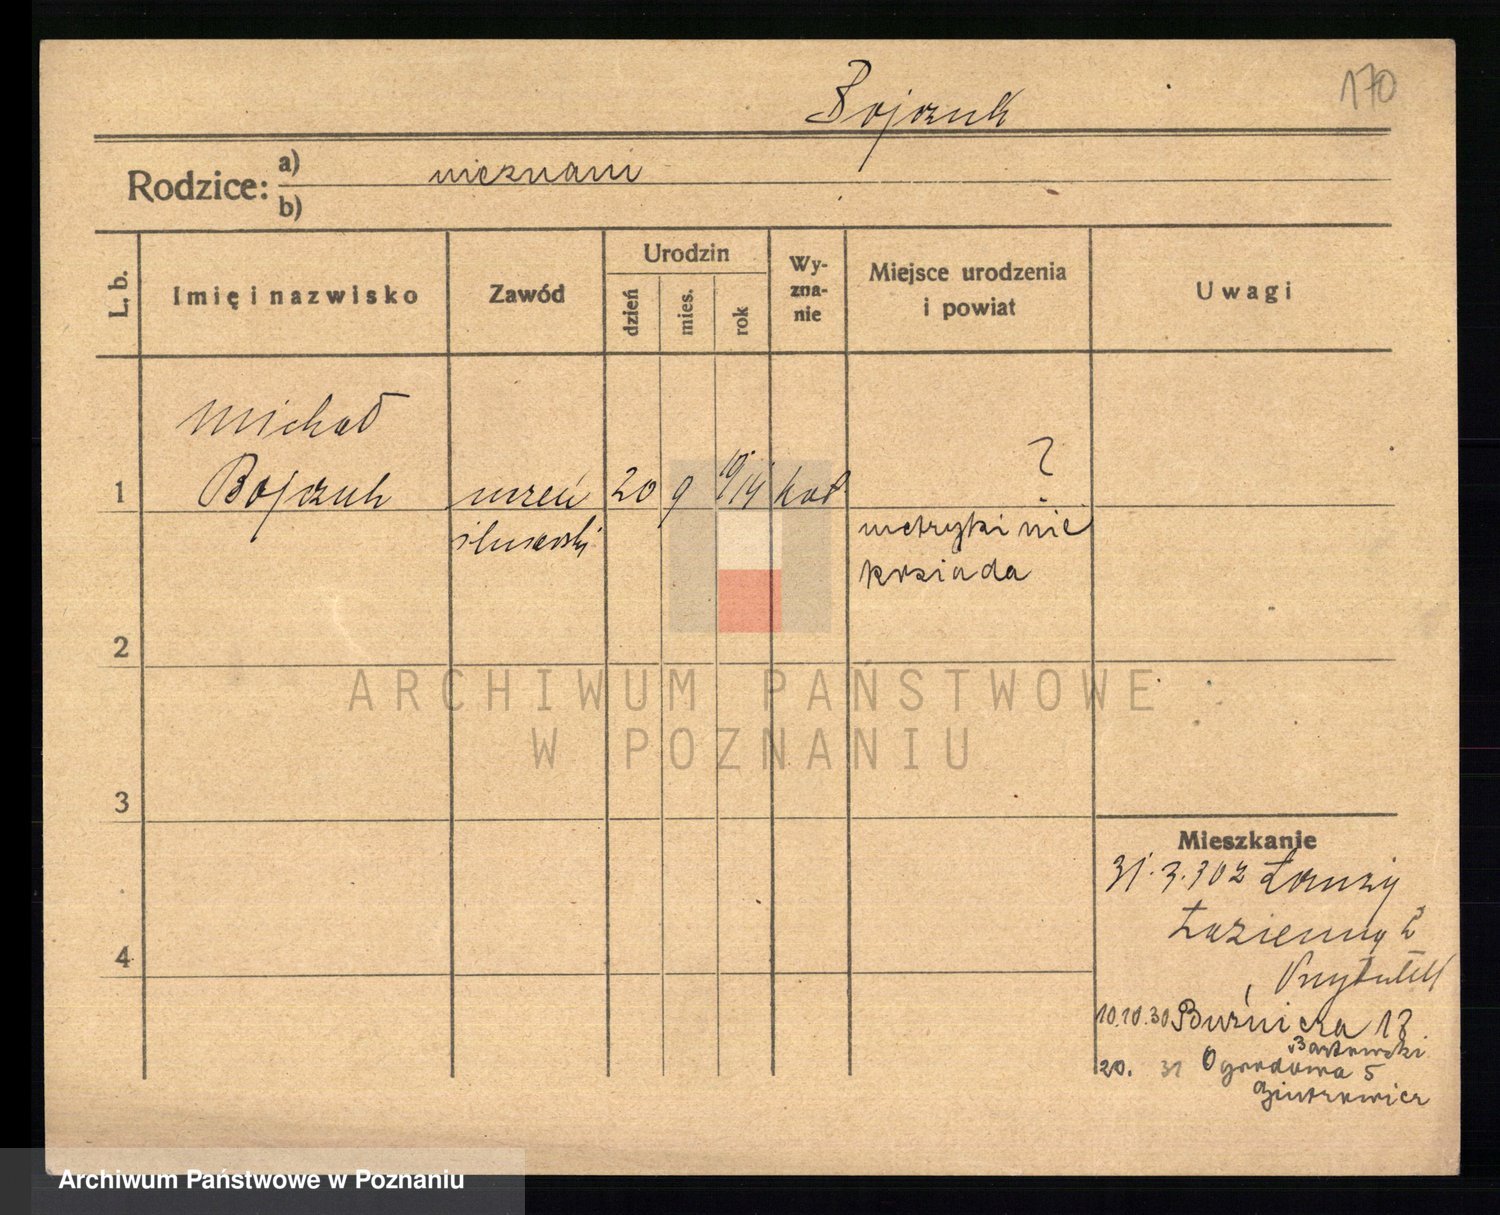 170
Bojczuk
Rodzice: a) nieznani
b)
L. b.
Imię i nazwisko
Zawód
Urodzin
dzień
mies.
rok
Wy-
zna-
nie
Miejsce urodzenia
i powiat
Uwagi
Michał
1 Bojczuk uczeń 20 9 19/14 kat ?
ślusarski
metryki nie
posiada
2
3
4
ARCHIWUM PAŃSTWOWE
W POZNANIU
Mieszkanie
31.3.30 z Łomży
Łazienną
Przytułek
10.10.30 Bużnicza 18
20. 31 Ogrodowa 5
Archiwum Państwowe w Poznaniu